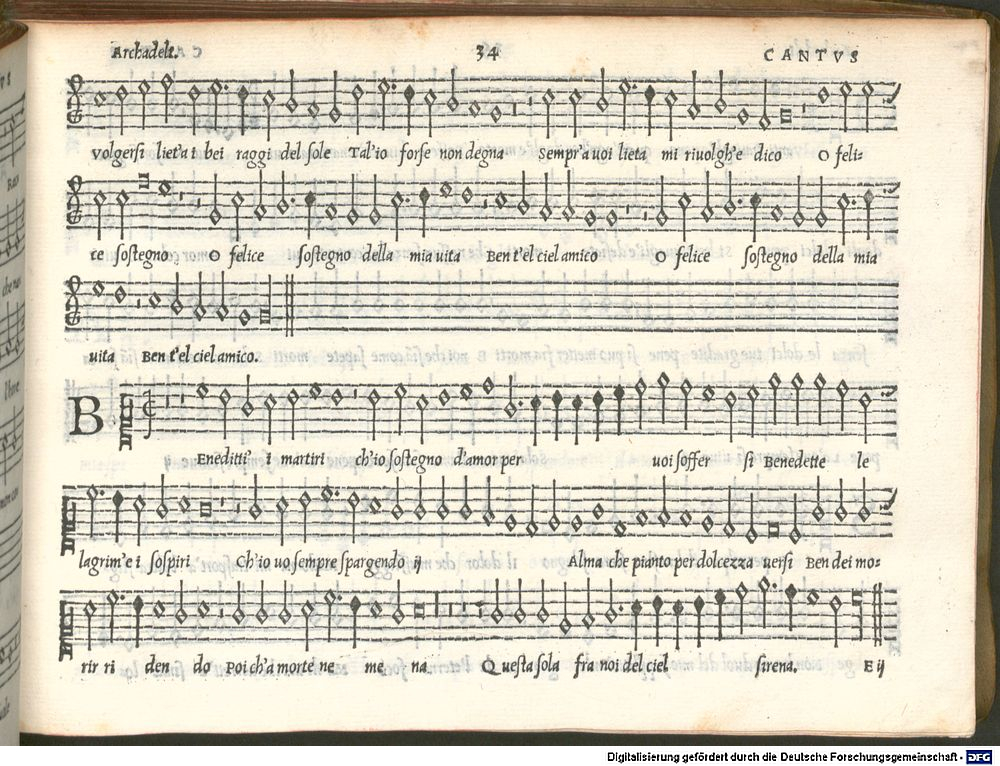 Archadelt. 34 CANTVS
volgersi liet'a i bei raggi del sole Tal'io forse non degna Sempr'a uoi lieta mi riuolgh'e dico O feli-
ce sostegno O felice sostegno della mia uita Ben t'el ciel amico O felice sostegno della mia
uita Ben t'el ciel amico.
BEneditti i martiri ch'io sostegno d'amor per uoi soffer si Benedette le
lagrim'e i sospiri Ch'io uo sempre spargendo ij Alma che pianto per dolcezza uersi Ben dei mo-
rir ri den do Poi ch'a morte ne me na Questa sola fra noi del ciel sirena. E ij
Digitalisierung gefördert durch die Deutsche Forschungsgemeinschaft - DFG